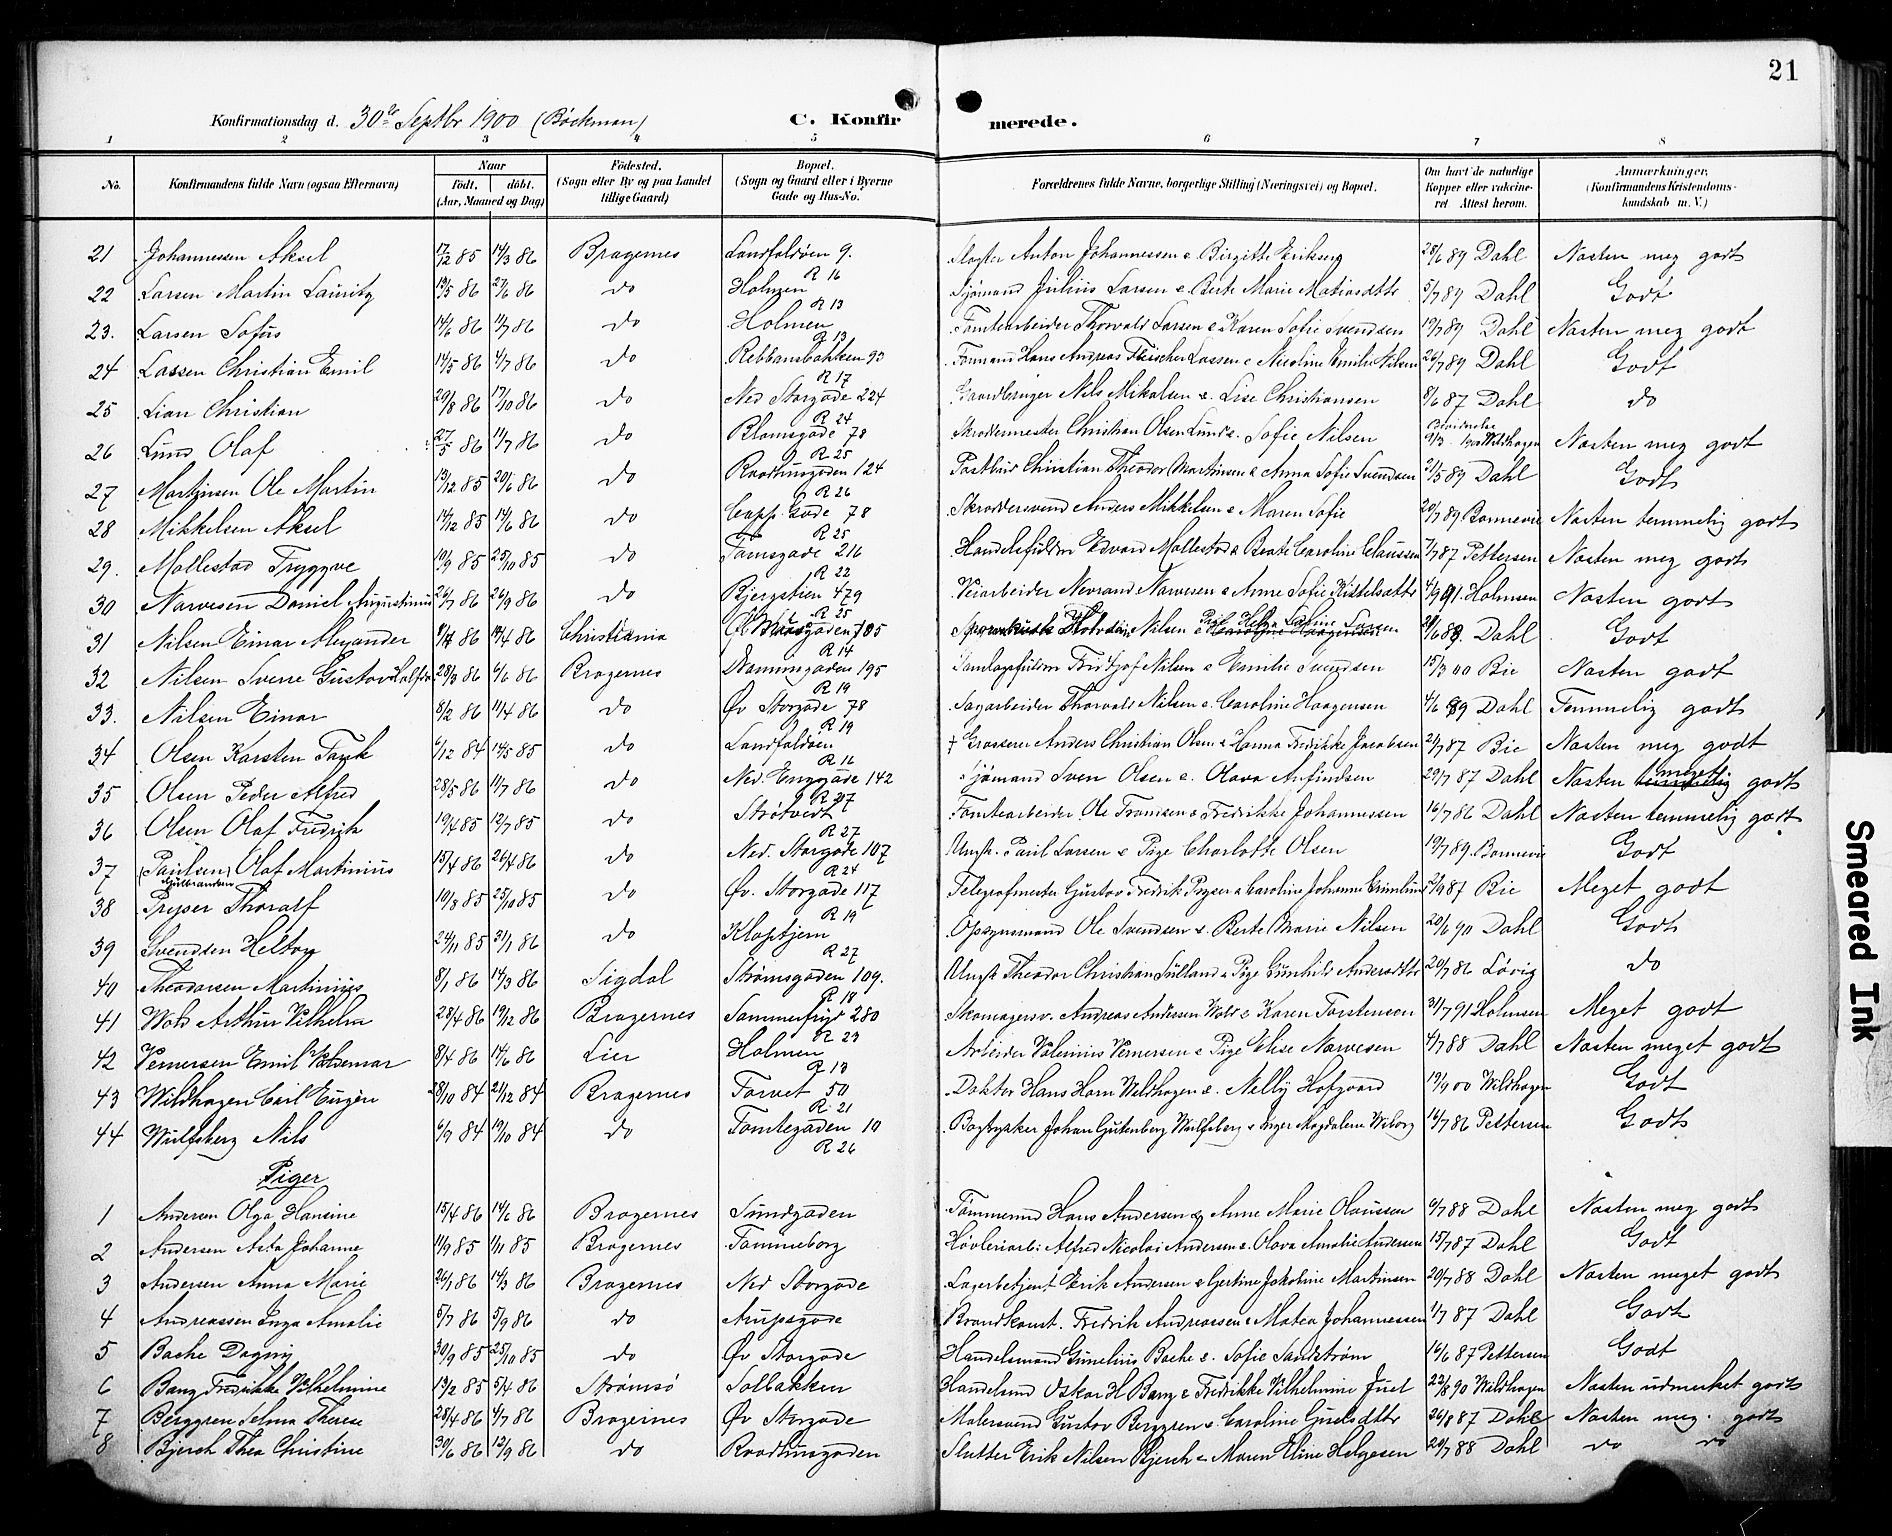 21
Konfirmationsdag d. 30te Septbr 1900 (Böckman) C. Konfirmerede.
1 2 3 4 5 6 7 8
No. Konfirmandens fulde Navn (ogsaa Efternavn) Naar Födt. döbt. (Aar, Maaned og Dag) Födested. (Sogn eller By og paa Landet tillige Gaard) Bopæl. (Sogn og Gaard eller i Byerne Gade og Hus-No. Forældrenes fulde Navne, borgerlige Stilling (Næringsvei) og Bopæl. Om havt de naturlige Kopper eller vakcineret Attest herom. Anmærkninger. (Konfirmandens Kristendomskundskab m. V.)
21 Johannessen Aksel 17/12 85 14/3 86 Bragernes Landfaldöen 9. R 16 Anton Johannessen & Birgitte Eriksen 28/6 89 Dahl Næsten meg godt
22 Larsen Martin Lauritz 19/5 86 27/6 86 do Holmen R 13 Sjömand Julius Larsen & Berte Marie Matiasdtr 5/7 89 Dahl Godt
23. Larsen Sofus 14/6 86 11/7 86 do Holmen R 13 Tomtearbeider Thorvald Larsen & Karen Sofie Svendsen 19/7 89 Dahl Næsten meg godt
24 Lassen Christian Emil 14/5 86 4/7 86 do Rebbansbakken 93 R 17 Formand Hans Andreas Fleischer Lassen & Nicoline Emilie Nilsen 26/7 89 Dahl Godt
25 Lian Christian 29/8 86 17/10 86 do Ned Storgade 224 R 24 Nils Mikalsen & Lise Christiansen 8/6 87 Dahl do
26 Lund Olaf 27/5 86 11/7 86 do Blomsgade 78 R 25 Skræddermester Christian Olsen Lund & Sofie Nilsen Wildhagen Næsten meg godt
27 Martinsen Ole Martin 13/12 85 20/6 86 do Raadhusgaden 124 R 26 Postbud Christian Theodor Martinsen & Anna Sofie Svendsen 21/5 89 Dahl Godt
28 Mikkelsen Aksel 14/12 85 14/6 86 do Capp. Gade 78 R 25 Skræddersvend Anders Mikkelsen & Maren Sofie 20/7 89 Bonnevie Næsten temmelig godt
29. Mollestad Tryggve 19/9 85 25/10 85 do Tomtegade 216 R 22 Handelsfuldm Edvard Mollestad & Beate Caroline Claussen 7/7 87 Pettersen Næsten meg godt
30 Narvesen Daniel Augustinus 26/7 86 26/9 86 do Bjergstien 479 R 25 Veiarbeider Nevrand Narvesen & Anne Sofie Kittelsdatter 4/9 91. Holmsen Næsten godt
31 Nilsen Einar Alexander 19/4 86 Christiania R 14 Nilsen & Pige Helga Sofine Larsen Dahl Godt
32 Nilsen Sverre Gustav Halfdan 28/3 86 6/6 86 Bragernes Drammsgaden 195 R 19 Samlagsfuldm Fridtjof Nilsen & Emilie Svendsen 15/3 00 Bie Næsten godt
33. Nilsen Einar 8/2 86 11/4 86 do Øv Storgade 78 R 19 Sagarbeider Thorvald Nilsen & Caroline Haagensen 4/6 89 Dahl Temmelig godt
34 Olsen Karsten Falck 6/12 84 14/5 85 do Landfaldöen R 16 † Grosserer Anders Christian Olsen & Hanna Fredrikke Jacobsen 21/7 87 Bie Næsten meg godt
35 Olsen Peder Alfred 28/5 86 11/7 86 do Ned. Enggade 142 R 27 Sjömand Sven Olsen & Olava Anfindsen 29/7 87 Dahl Næsten meget godt
36 Olsen Olaf Fredrik 19/4 85 12/7 85 do Strötvedt R 27 Tomtearbeider Ole Fransen & Fredrikke Johannessen 16/7 86 Dahl Næsten temmelig godt
37 (Paulsen) Olaf Martinius Gulbrandsen 15/4 86 26/4 86 do Ned. Storgade 107 R 24 Ungk. Paul Larsen & Pige Charlotte Olsen 19/7 89. Bonnevie Godt
38 Pryser Thoralf 10/8 85 25/10 85 do Øv. Storgade 117 R 19 Telegrafmester Gustav Fredrik Pryser & Caroline Johanne Grimlund 21/9 87 Bie Meget godt
39 Svendsen Helton 24/11 85 31/1 86 do Kloptjern R 27 Opsynsmand Ole Svendsen & Berte Marie Nilsen 20/6 90 Dahl Godt
40 Theodorsen Martinius 8/1 86 14/3 86 Sigdal Strömsgaden 109. R 18 Ungk Theodor Christian Sulland & Pige Gunhild Andersdtr 20/7 86 Lövig do
41 Wold Arthur Vilhelm 28/4 86 19/12 86 Bragernes Sommerfryd 280 R 23 Skomagersv. Andreas Andersen Wold & Karen Torstenson 31/7 91 Holmsen Meget godt
42 Vernersen Emil Valdemar 8/4 86 14/6 86 Lier Holmen R 13 Arbeider Valenius Vernersen & Pige Elise Narvesen 4/7 88 Dahl Næsten meget godt
43 Wildhagen Carl Eugen 28/10 84 21/12 84 Bragernes Torvet 50 R. 21 Doktor Hans Horn Wildhagen & Nelly Hofgaard 19/9 00 Wildhagen Godt
44 Wulfsberg Nils 6/9 84 19/10 84 do Tomtegaden 10 R 26 Bogtrykker Johan Gutenberg Wulfsberg & Inger Magdalene Wiborg 16/7 86 Pettersen Godt
Piger
1 Andersen Olga Hansine 15/4 86 14/6 86 Bragernes Sundgaden Tömmermd Hans Andersen & Anne Marie Olaussen 6/7 88 Dahl Næsten meg godt
2 Andersen Asta Johanne 11/9 85 1/11 85 Bragernes Tommeborg Hövleriarb: Alfred Nicolai Andersen & Olava Amalie Andersen 15/7 87 Dahl Godt
3 Andersen Anna Marie 26/1 86 14/3 86 Bragernes Ned Storgade Lagerbetjent Erik Andersen & Gjertine Jakobine Martinsen 20/7 88 Dahl Næsten meget godt
4 Andreassen Inga Amalie 5/7 86 5/9 86 do Amtsgade Brandkonst. Fredrik Andreassen & Matea Johannessen 1/7 87 Dahl Godt
5 Bache Dagny 30/9 85 25/10 85 do Øv Storgade Handelsmand Gunelius Bache & Sofie Sandström 16/6 87 Pettersen Godt
6 Bang Fredrikke Vilhelmine 19/2 85 5/4 86 Strömsö Solbakken Handelsmd Oskar H Bang & Fredrikke Vilhelmine Juel 22/8 90 Wildhagen Næsten udmerket godt
7 Berggren Selma Therese 28/4 86 4/7 86 Bragernes Øv Storgade Malersvend Gustav Berggren & Caroline 26/8 87 Dahl Næsten meg. godt
8 Bjerch Thea Christine 30/6 86 12/9 86 do Raadhusgaden Slutter Erik Nilsen Bjerch & Maren Eline Helgesen 20/7 88 Dahl do do
Smeared Ink